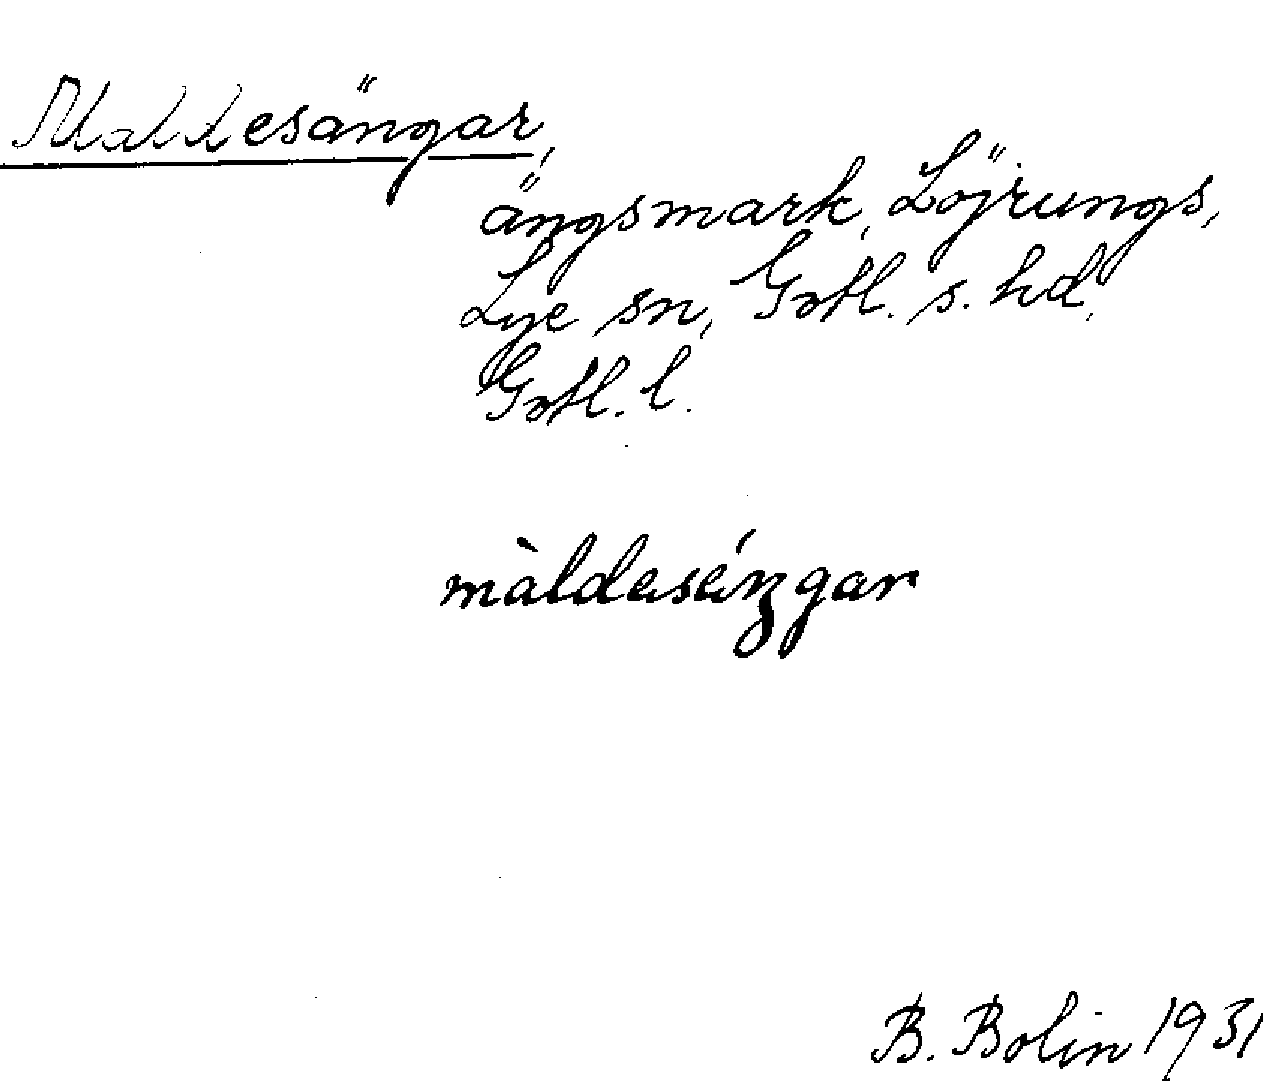 Maldesängar,
ängsmark, Löjrungs,
Lye sn, Gotl. s. hd,
Gotl. l.
màldeséŋgar
B. Bolin 1931